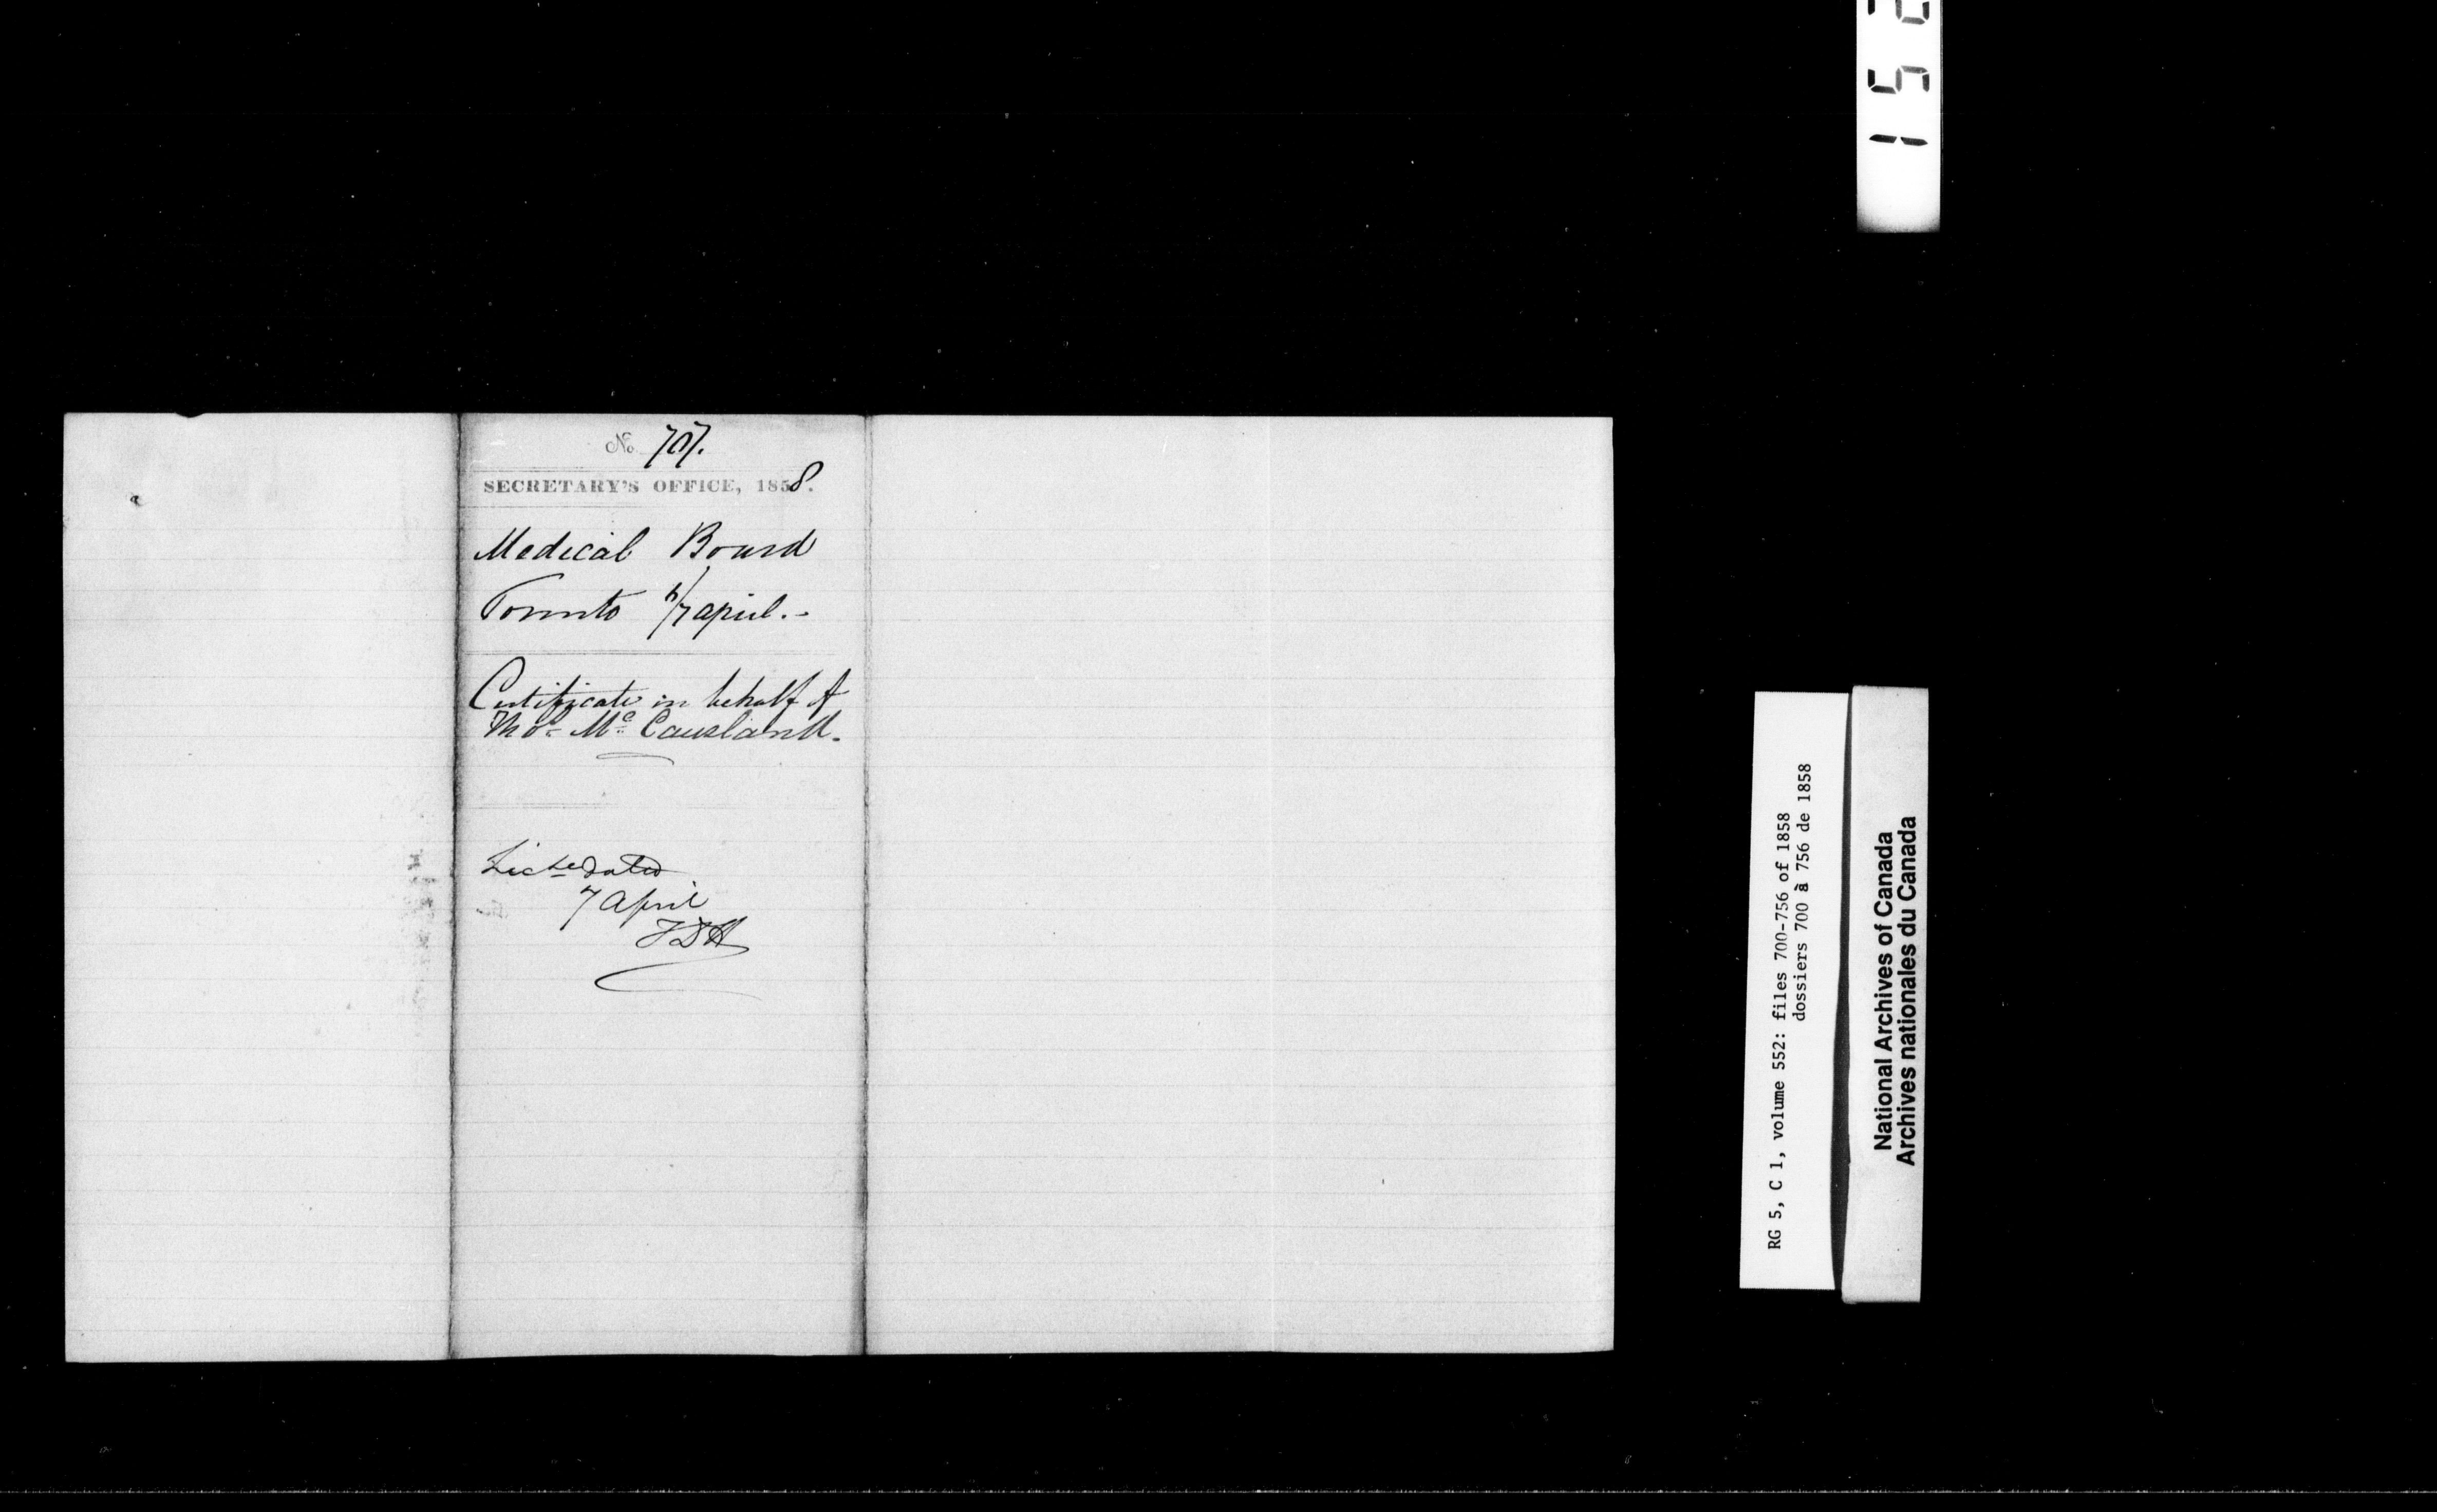 No 707.
SECRETARY'S OFFICE, 1858.
Medical Board
Toronto 6/7 april.-
Certificate in behalf of
Thos Mc Causland.
Licse dated
7 April
RG 5, C 1, volume 552: files 700-756 of 1858
dossiers 700 à 756 de 1858
National Archives of Canada
Archives nationales du Canada